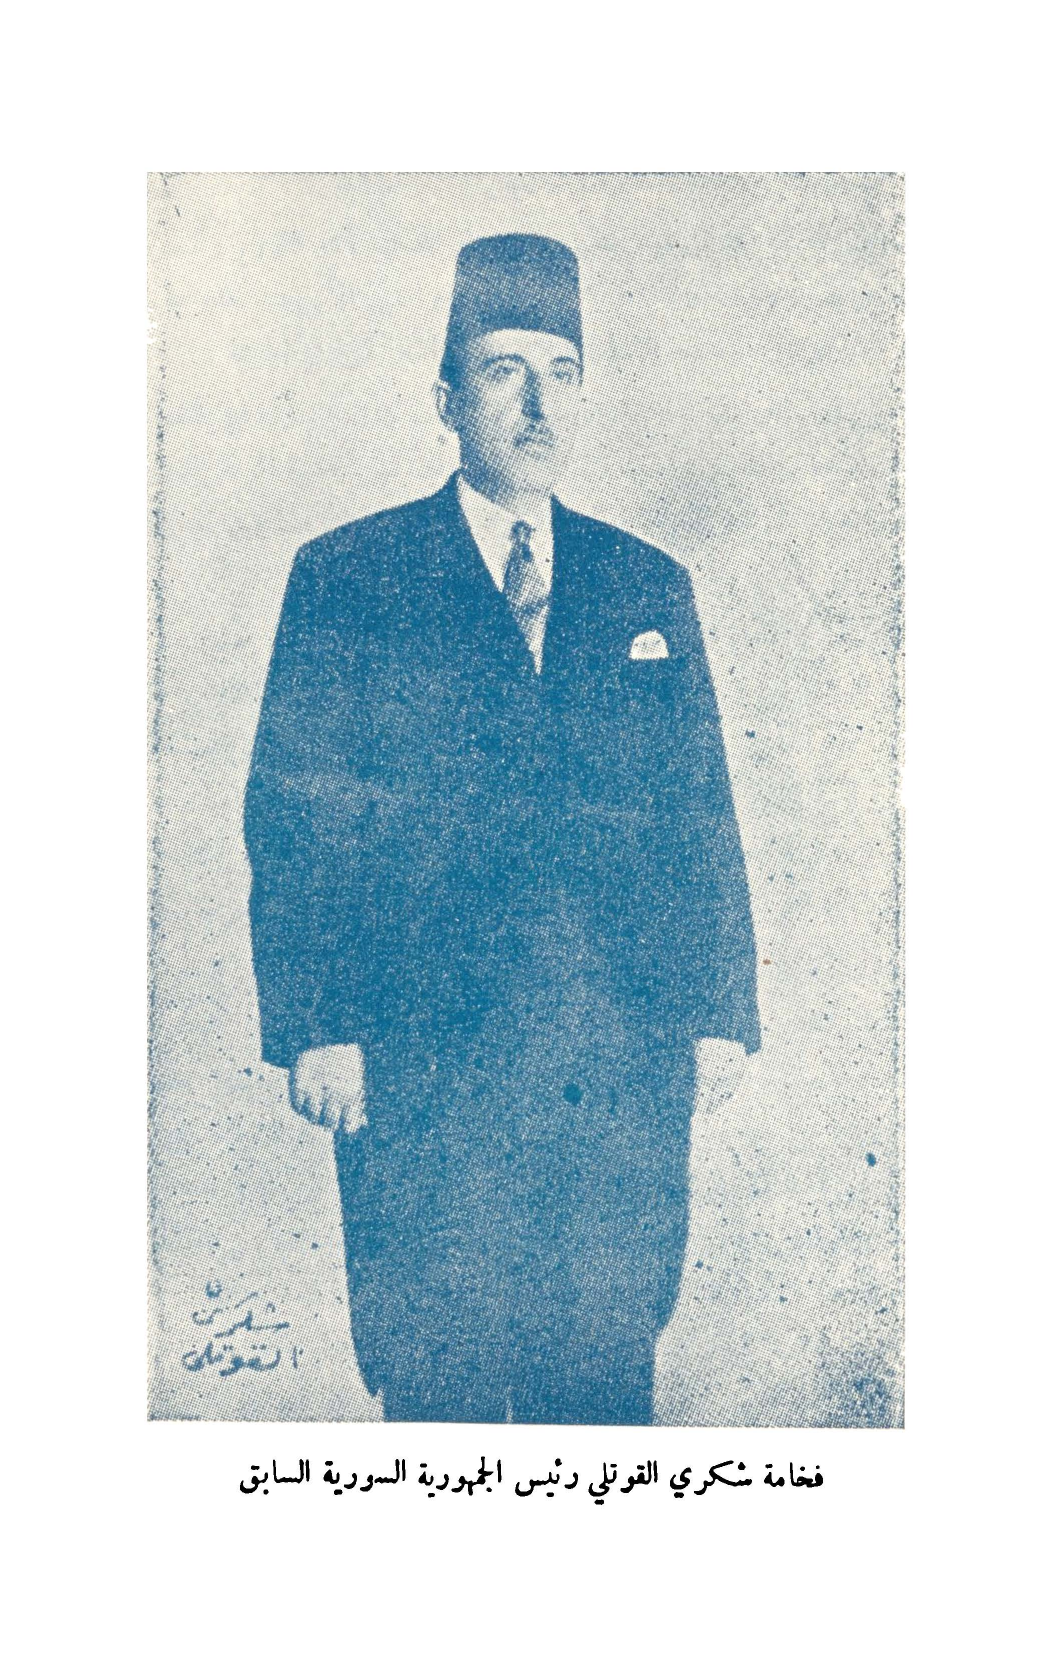 شكري
القوتلي
فخامة شكري القوتلي رئيس الجمهورية السورية السابق